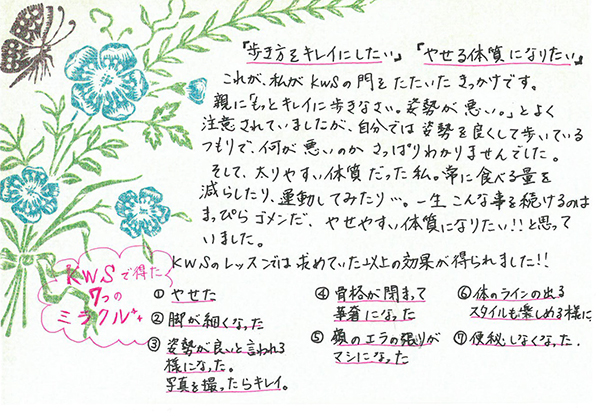 「歩き方をキレイにしたい」「やせる体質になりたい」
これが、私がKWSの門をたたいたきっかけです。
親に「もっとキレイに歩きなさい。姿勢が悪い。」とよく
注意されていましたが、自分では姿勢を良くして歩いている
つもりで、何が悪いのかさっぱりわかりませんでした。
そして、太りやすい体質だった私。常に食べる量を
減らしたり、運動してみたり…。一生こんな事を続けるのは
まっぴらゴメンだ、やせやすい体質になりたい!!と思って
いました。
KWSのレッスンでは求めていた以上の効果が得られました!!
KWSで得た
7つの
ミラクル
① やせた
② 脚が細くなった
③ 姿勢が良いと言われる
様になった。
写真を撮ったらキレイ。
④ 骨格が閉まって
華奢になった
⑤ 顔のエラの張りが
マシになった
⑥ 体のラインの出る
スタイルも楽しめる様に
⑦ 便秘しなくなった.